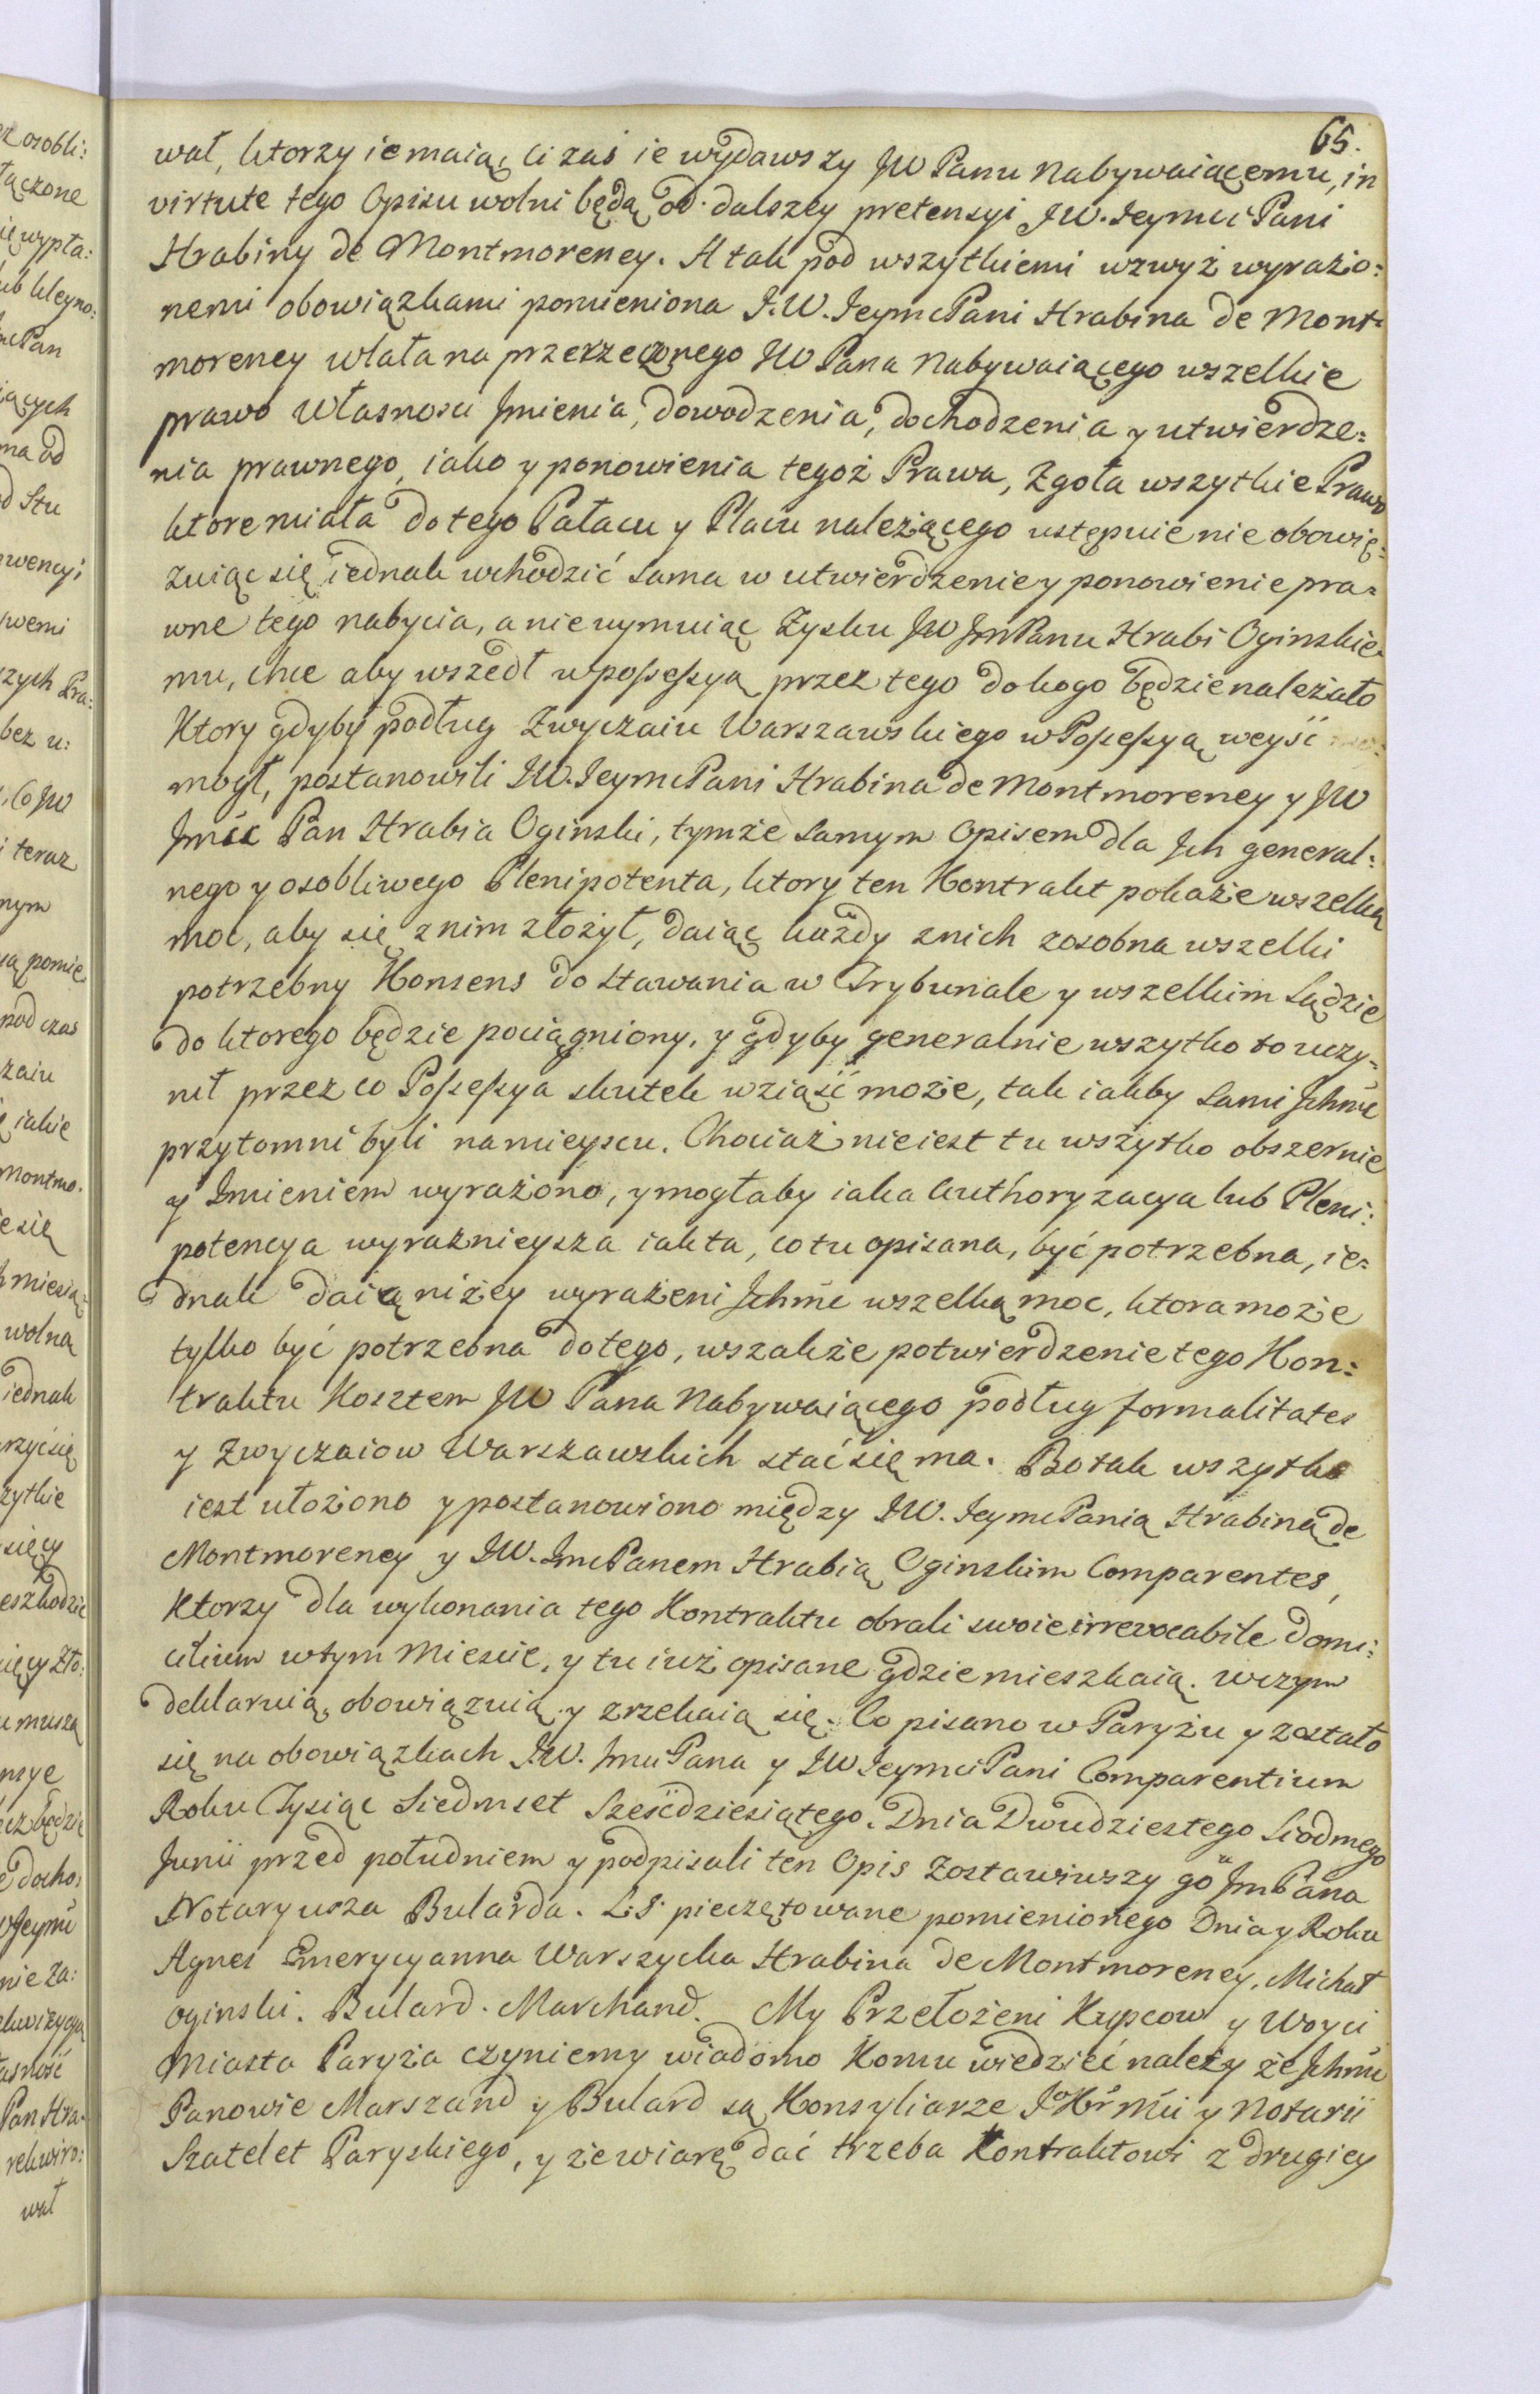 65.
wał, ktorzy ie maią, ci zaś ie wydawszy JW Panu Nabywaiącemu, in
virtute tego Opisu wolni będą od dalszey pretensyi JW. Jeymci Pani
Hrabiny de Montmoreney. A tak pod wszytkiemi wzwyż wyrażo:
nemi obowiązkami pomieniona J.W. Jeymc Pani Hrabina de Mont-
moreney wlała na przerzeczonego JW Pana Nabywaiącego wszelkie
prawo Własności Jmienia, dowodzenia, dochodzenia y utwierdze:
nia prawnego, iako y ponowienia tegoż Prawa, Zgoła wszytkie Prawo
ktore miała do tego Pałacu y Placu należiącego ustępuie nie obowię:
zuiąc się iednak wchodzić sama w utwierdzenie y ponowienie pra:
wne tego nabycia, a nie uymuiąc Zysku JW JmPanu Hrabi Oginskie:
mu, chce aby wszedł w possessyą przez tego do kogo będzie należało
Ktory gdyby podług Zwyczaiu Warszawskiego w Possessyą weyść
mogł, postanowili JW. Jeymc Pani Hrabina de Montmoreney y JW
Jmćc Pan Hrabia Oginski, tymże samym Opisem dla Jch general:
nego y osobliwego Plenipotenta, ktory ten Kontrakt pokaże wszelką
moc, aby się z nim złożył, daiąc każdy z nich zosobna wszelki
potrzebny Konsens do stawania w Trybunale y wszelkim Sądzie
do ktorego będzie pociągniony, y gdyby generalnie wszytko to uczy-
nił przez co Possessya skutek wziąść może, tak iakby sami Jchmć
przytomni byli na mieyscu. Chociaż nie iest tu wszytko obszernie
y Imieniem wyrażono, y mogłaby iaka Authoryzacya lub Pleni:
potencya wyraźnieysza iak ta, co tu opisana, być potrzebna, ie:
dnak daią niżey wyrażeni Jchmć wszelką moc, ktora może
tylko być potrzebna do tego, wszakże potwierdzenie tego Kon:
traktu Kosztem JW Pana Nabywaiącego podług formalitates
y Zwyczaiow Warszawskich stać się ma. Bo tak wszytko
iest ułożono y postanowiono między JW. Jeymc Panią Hrabiną de
Montmoreney y JW. Jmc Panem Hrabią Oginskim Comparentes,
Ktorzy dla wykonania tego Kontraktu obrali swoie irrevocabile Domi:
cilium w tym Mieście, y tu iuż opisane gdzie mieszkaią. w czym
deklaruią, obowiązuią y zrzekaią się. Co pisano w Paryżu y zostało
się na obowiązkach JW. Jmci Pana y JW Jeymci Pani Comparentium
Roku Tysiąc Siedmset Sześćdziesiątego. Dnia Dwudziestego Siodmego
Junii przed południem y podpisali ten Opis Zostawiwszy go u Jm Pana
Notaryusza Bularda. L:S: pieczętowane pomienionego Dnia y Roku
Agnes Emerycyanna Warszycka Hrabina de Montmoreney. Michał
Oginski. Bulard. Marchand. My Przełożeni Kupcow y Woyci
Miasta Paryża czyniemy wiadomo Komu wiedzieć należy że Jchmć
Panowie Marszand y Bulard są Konsyliarze JoKr Mci y Notarii
Szatelet Paryskiego, y że wiarę dać trzeba Kontraktowi z drugiey